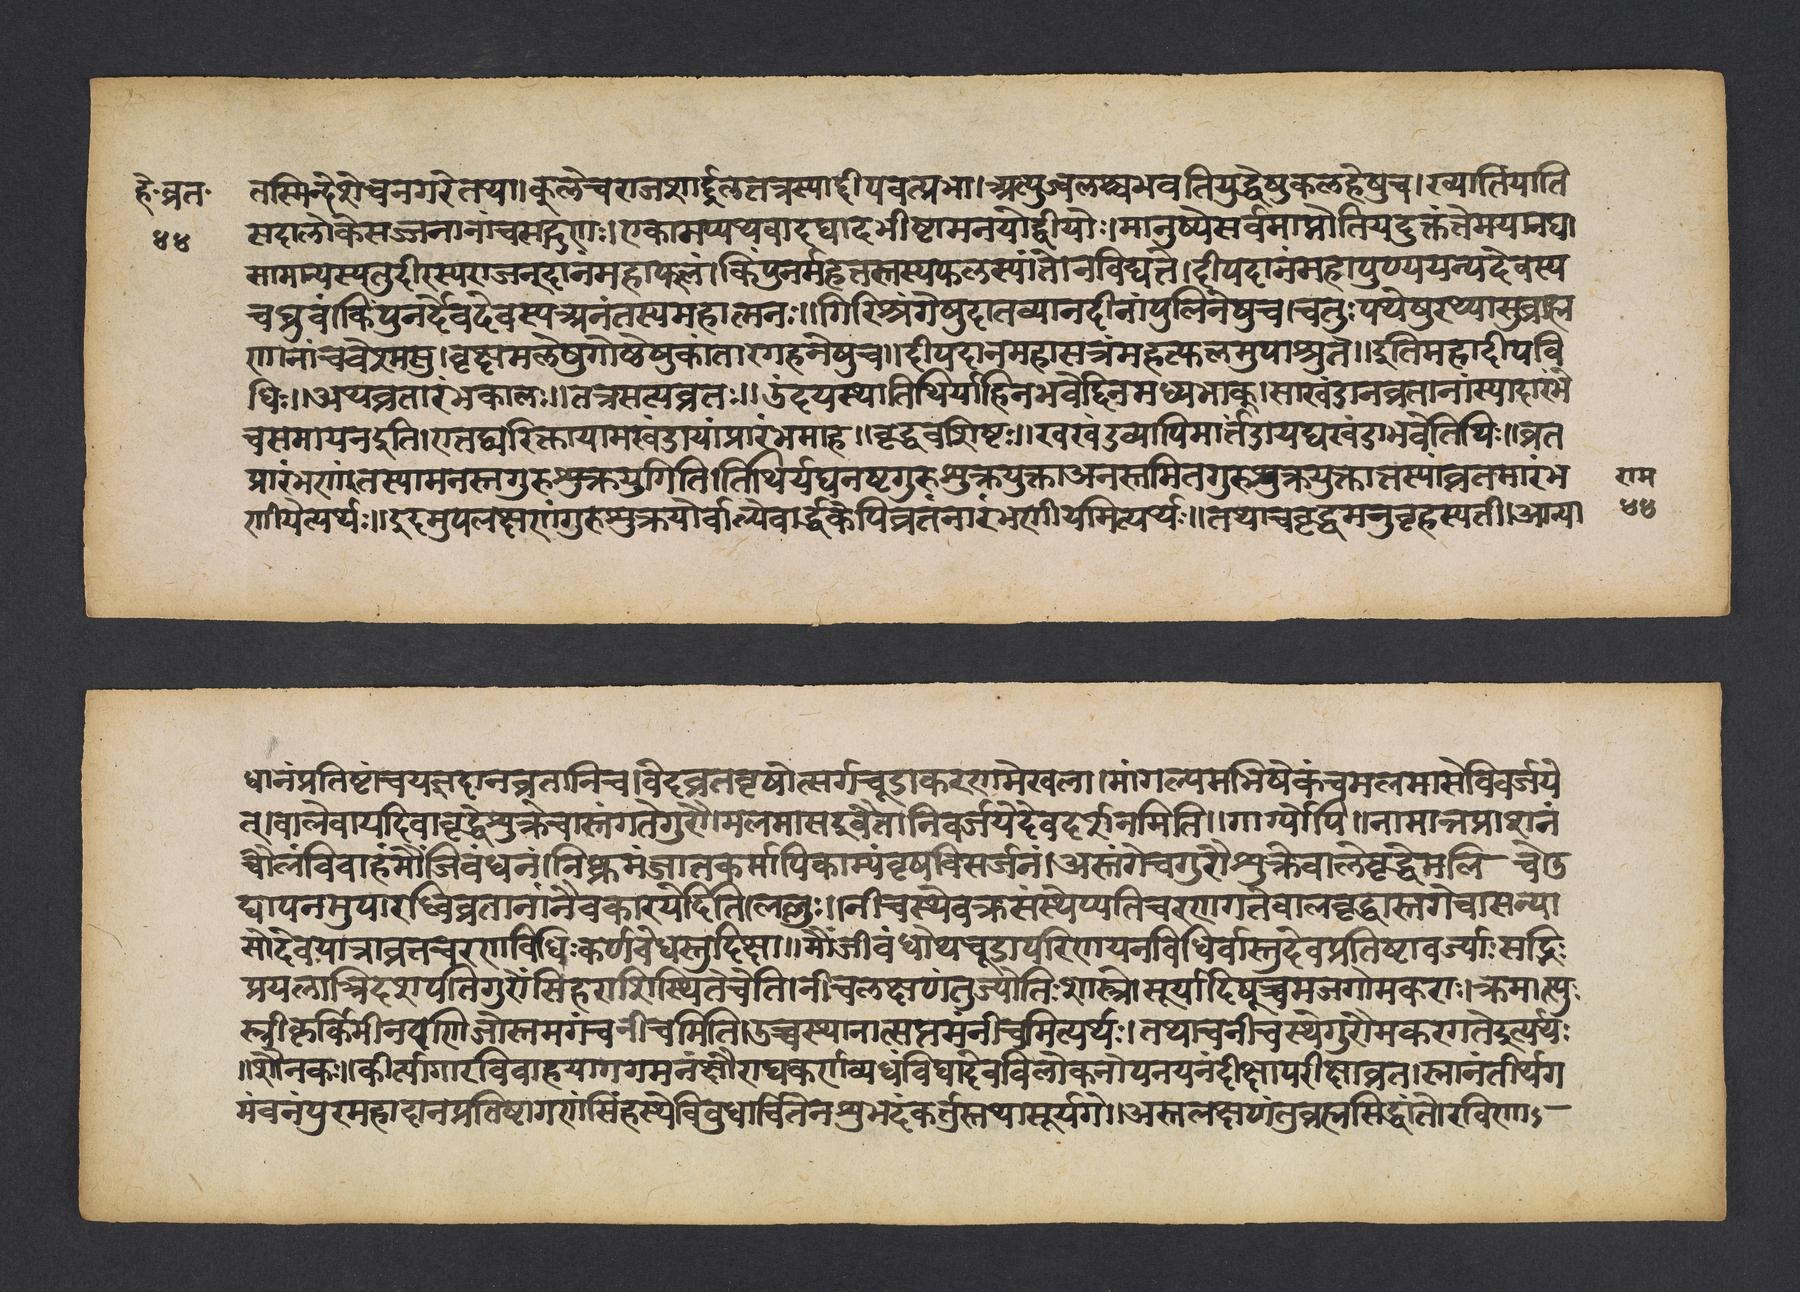 हे॰व्रत॰
४४
तस्मिन्देशेचनगरेतथा॥कुलेचराजशार्दूलतत्रस्याद्दीपवत्प्रभा।अत्युज्वलश्चभवतियुद्धेषुकलहेषुच।ख्यातिंयाति
सदालोकेसज्जनानांचसद्गुणः।एकामप्यथवादद्यादभीष्टामनयोर्द्वयोः।मानुष्येसर्वमाप्नोतियदुक्तंतेमयानघ।
सामान्यस्यतुदीपस्यराजन्दानंमहाफलं।किंपुनर्महतस्तस्यफलस्यांतोनविद्यते।दीपदानंमहापुण्यमन्यदेवस्य
चध्रुवं।किंपुनर्देवदेवस्यअनंतस्यमहात्मनः॥गिरिशृंगेषुदातव्यानदीनांपुलिनेषुच।चतुःपथेषुरथ्यासुब्राह्म
णानांचवेश्मसु।वृक्षामलेषुगोष्ठेषुकांतारगहनेषुच॥दीपदानमहासत्रंमहत्फलमुपाश्नुते॥इतिमहादीपवि
धिः॥अथव्रतारंभकालः॥तत्रसत्यव्रतः॥उदयस्थातिथिर्याहिनभवेद्दिनमध्यभाक्।साखंडानव्रतानांस्यादारंभे
चसमापनइति।एतद्व्यरिक्तायामखंडायांप्रारंभमाह॥वृद्धवशिष्टः॥खखंडव्यापिमार्तंडायद्यखंडाभवेतिथिः॥व्रत
प्रारंभणं।तस्यामनस्तगुरुशुक्रयुगिति।तिथिर्यद्यनष्टगुरुशुक्रयुक्ताअनस्तमितगुरुशुक्रयुक्तातस्यांव्रतमारंभ
णीयेत्यर्थः॥इदमुपलक्षणंगुरुशुक्रयोर्बाल्येवार्द्धकेपिव्रतंनारंभणीयमित्यर्थः॥तथाचवृद्धमनुबृहस्पती।आन्या
राम
४४
धानंप्रतिष्टांचयज्ञदानव्रतानिच।वेदव्रतवृषोत्सर्गचूडाकरणमेखला।मांगल्यमभिषेकंचमलमासेविवर्जये
त्।बालेवायदिवावृद्धेशुक्रेचास्तंगतेगुरौ।मलमासइवैतानिवर्जयेद्देवदर्शनमिति॥गार्ग्योपि॥नामान्नप्राशनं
चौलंविवाहंमौंजिबंधनं।निष्क्रमंजातकर्मापिकाम्यंवृषविसर्जनं।अस्तंगेचगुरौशुक्रेबालेवृद्धेमलि चेउ
द्यापनमुपारंधिव्रतानांनैवकारयेदिति।लल्लः॥नीचस्थेवक्रसंस्थेप्यतिचरणगतेबालवृद्धास्तगेवासन्या
सोदेवयात्राव्रतचरणविधिःकर्णवेधस्तुदिक्षा॥मौंजीबंधोथचूडापरिणयनविधिर्वास्तुदेवप्रतिष्टावर्ज्याःसद्भिः
प्रयत्नान्निदशपतिगुरौसिंहराशिस्थितेचेति।नीचलक्षणंतुज्योतिःशास्त्रे।सूर्यादिषूच्चमजगोमकराः।क्रमात्पु
स्त्रीकर्किमीनवणिजोस्तमगंचनीचमिति।उच्चस्थानात्सप्तमंनीचमित्यर्थः।तथाचनीचस्थेगुरौमकरगतेइत्यर्थः
॥शौनकः॥कीर्त्यागारविवाहयागगमनंक्षौराद्यकर्णव्यधंविद्यादेवविलोकनोपनयनंदीक्षापरीक्षाव्रत।स्नानंतीर्थग
मंवनंपुरमहादानप्रतिष्टागणंसिंहस्थेविबुधार्चितेनशुभदंकर्तुस्तथासूर्यगे॥अस्तलक्षणंतुब्रह्मसिद्धांते।रविणा